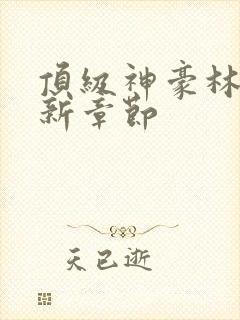 頂級神豪林
新章節
天已逝